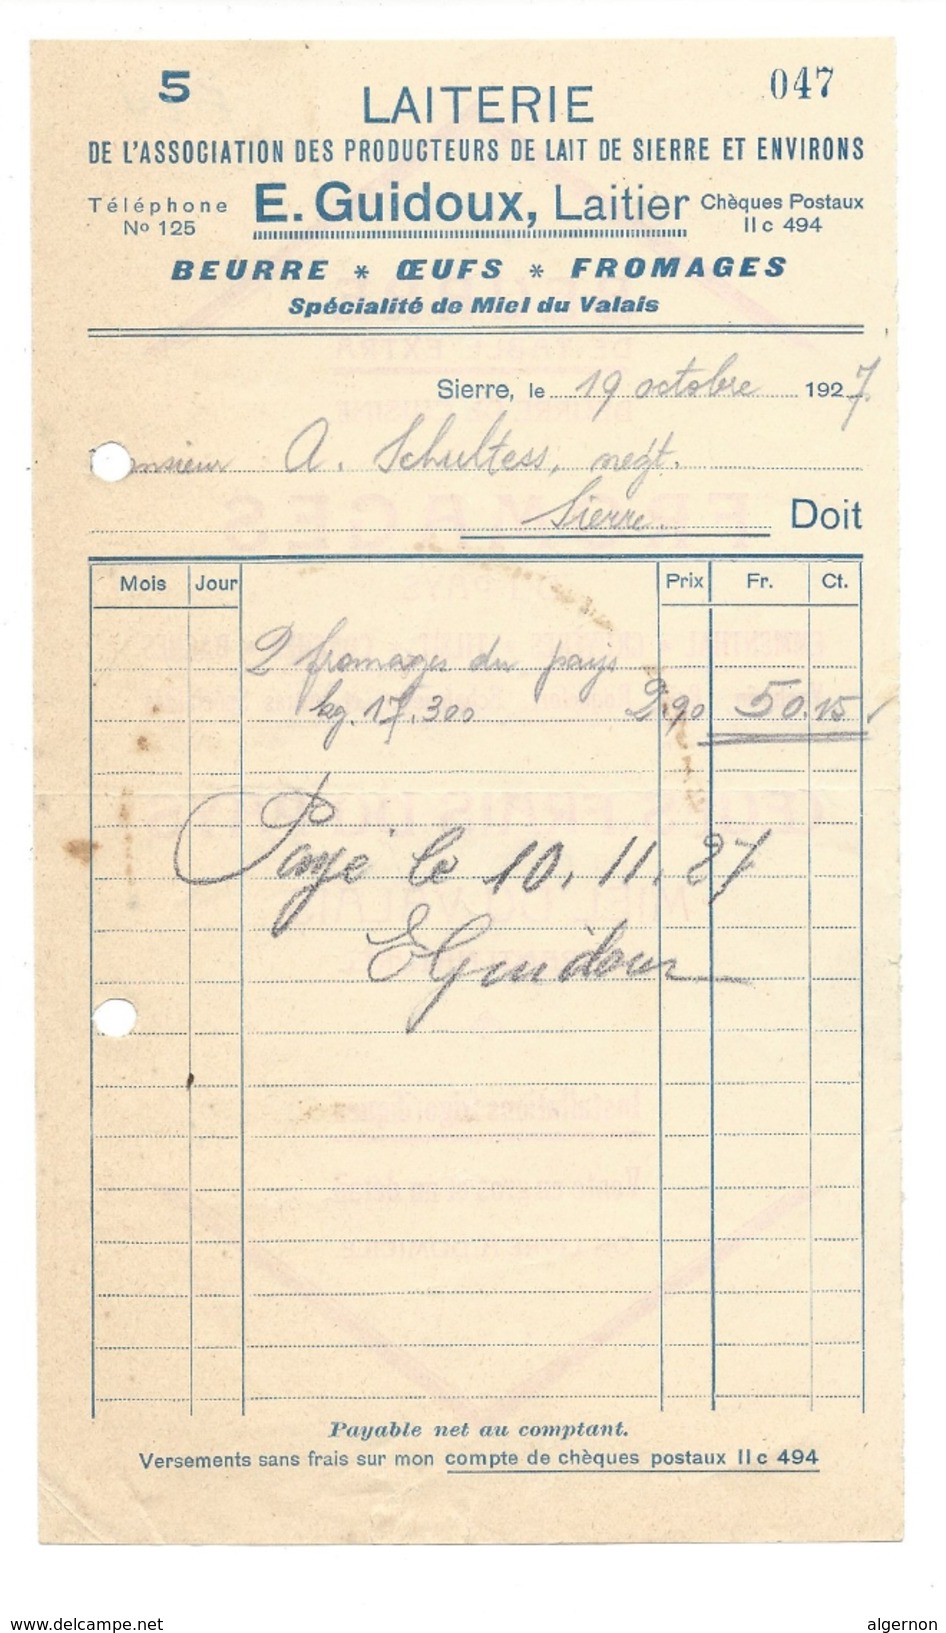 5
047
LAITERIE
DE L'ASSOCIATION DES PRODUCTEURS DE LAIT DE SIERRE ET ENVIRONS
Téléphone
No 125
E. Guidoux, Laitier
Chèques Postaux
II c 494
BEURRE * ŒUFS * FROMAGES
Spécialité de Miel du Valais
Sierre, le 19 octobre 1927.
Monsieur A. Schultess, négt.
Sierre. Doit
Mois Jour Prix Fr. Ct.
2 fromages du pays
kg. 17.300 2.90 50.15
Payé le 10.11.27
EGuidoux
Payable net au comptant.
Versements sans frais sur mon compte de chèques postaux II c 494
www.delcampe.net
algernon